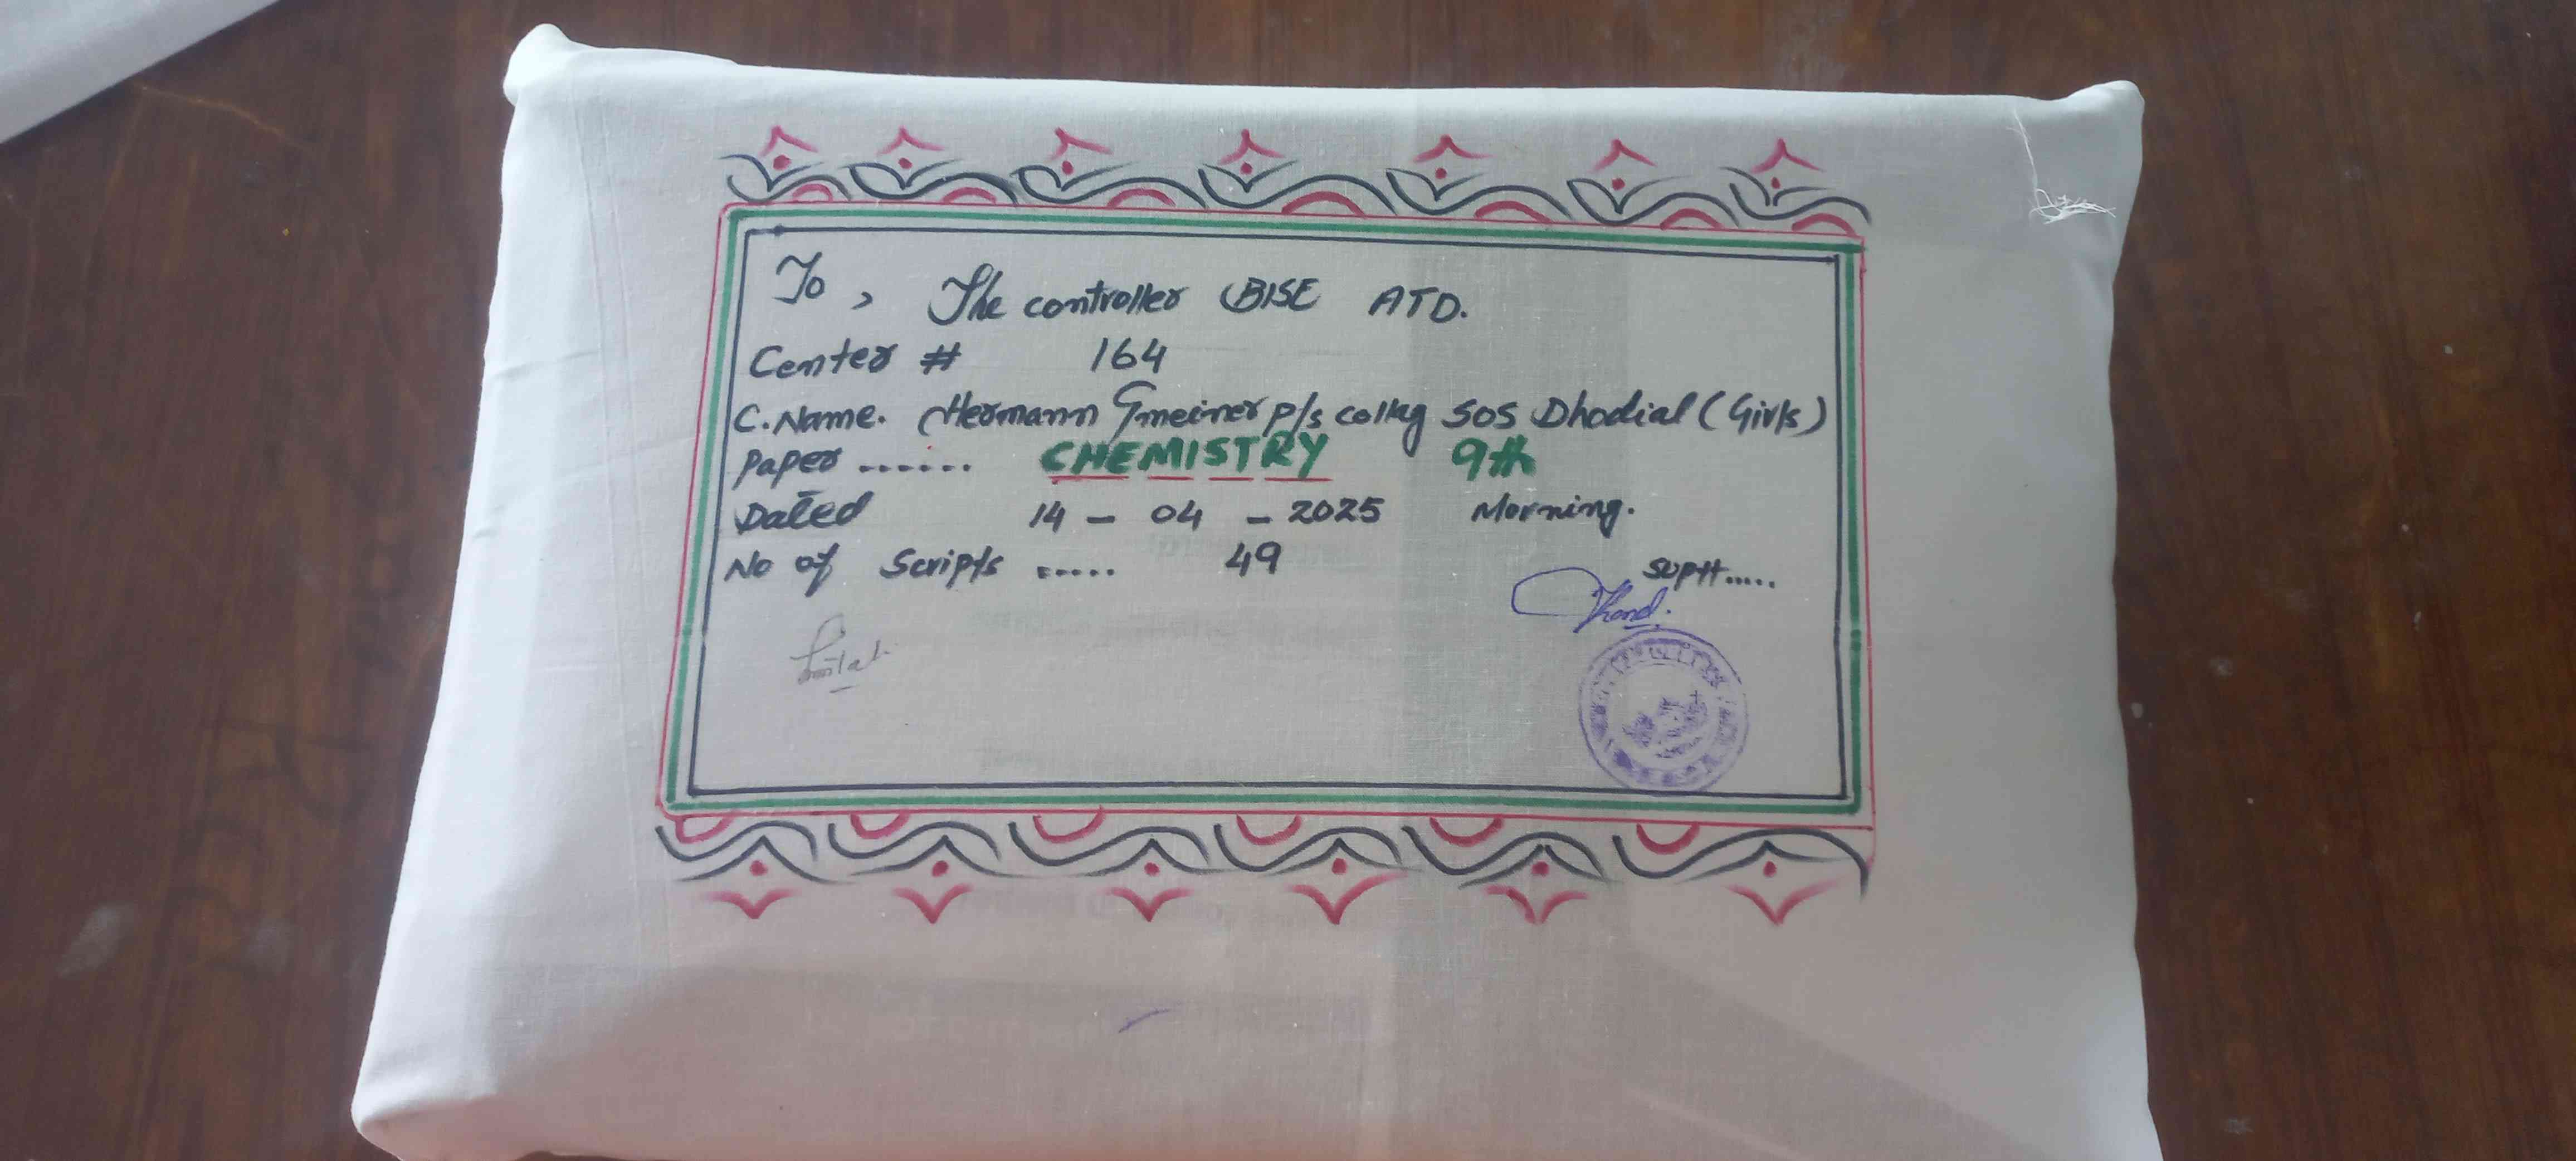 To, The controller BISE ATD.
Center # 164
C.Name. Hermann Gmeiner p/s colleg SOS Dhodial (Girls)
Paper ...... CHEMISTRY 9th
Dated 14 - 04 - 2025 Morning.
No of Scripts ..... 49
SUPtt.....